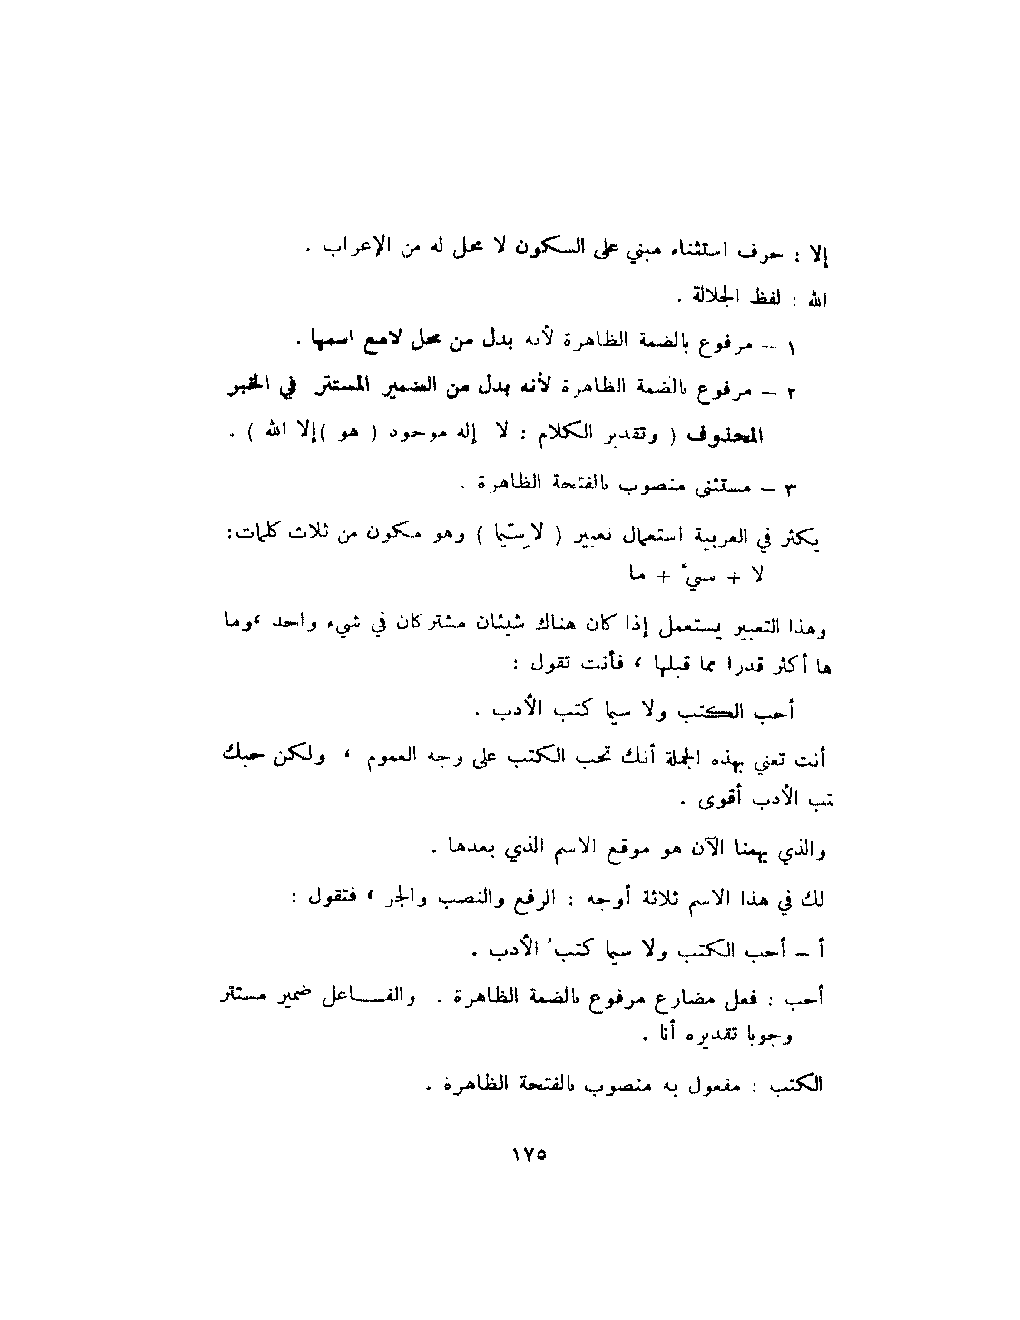 إلا : حرف استثناء مبني على السكون لا محل له من الإعراب .
الله : لفظ الجلالة .
١ – مرفوع بالضمة الظاهرة لأنه بدل من محل لا مع اسمها .
٢ – مرفوع بالضمة الظاهرة لأنه بدل من الضمير المستتر في الخبر
المحذوف ( وتقدير الكلام : لا إله موجود ( هو )إلا الله ) .
٣ – مستثنى منصوب بالفتحة الظاهرة .
يكثر في العربية استعمال تعبير ( لاسِيّما ) وهو مكون من ثلاث كلمات:
لا + سيّ + ما
وهذا التعبير يستعمل إذا كان هناك شيئان مشتركان في شيء واحد ،وما
ها أكثر قدرا مما قبلها ، فأنت تقول :
أحب الكتب ولا سيما كتب الأدب .
أنت تعني بهذه الجملة أنك تحب الكتب على وجه العموم ، ولكن حبك
تب الأدب أقوى .
والذي يهمنا الآن هو موقع الاسم الذي بعدها .
لك في هذا الاسم ثلاثة أوجه : الرفع والنصب والجر ، فتقول :
أ – أحب الكتب ولا سيما كتبُ الأدب .
أحب : فعل مضارع مرفوع بالضمة الظاهرة . والفـــاعل ضمير مستتر
وجوبا تقديره أنا .
الكتب : مفعول به منصوب بالفتحة الظاهرة .
١٧٥